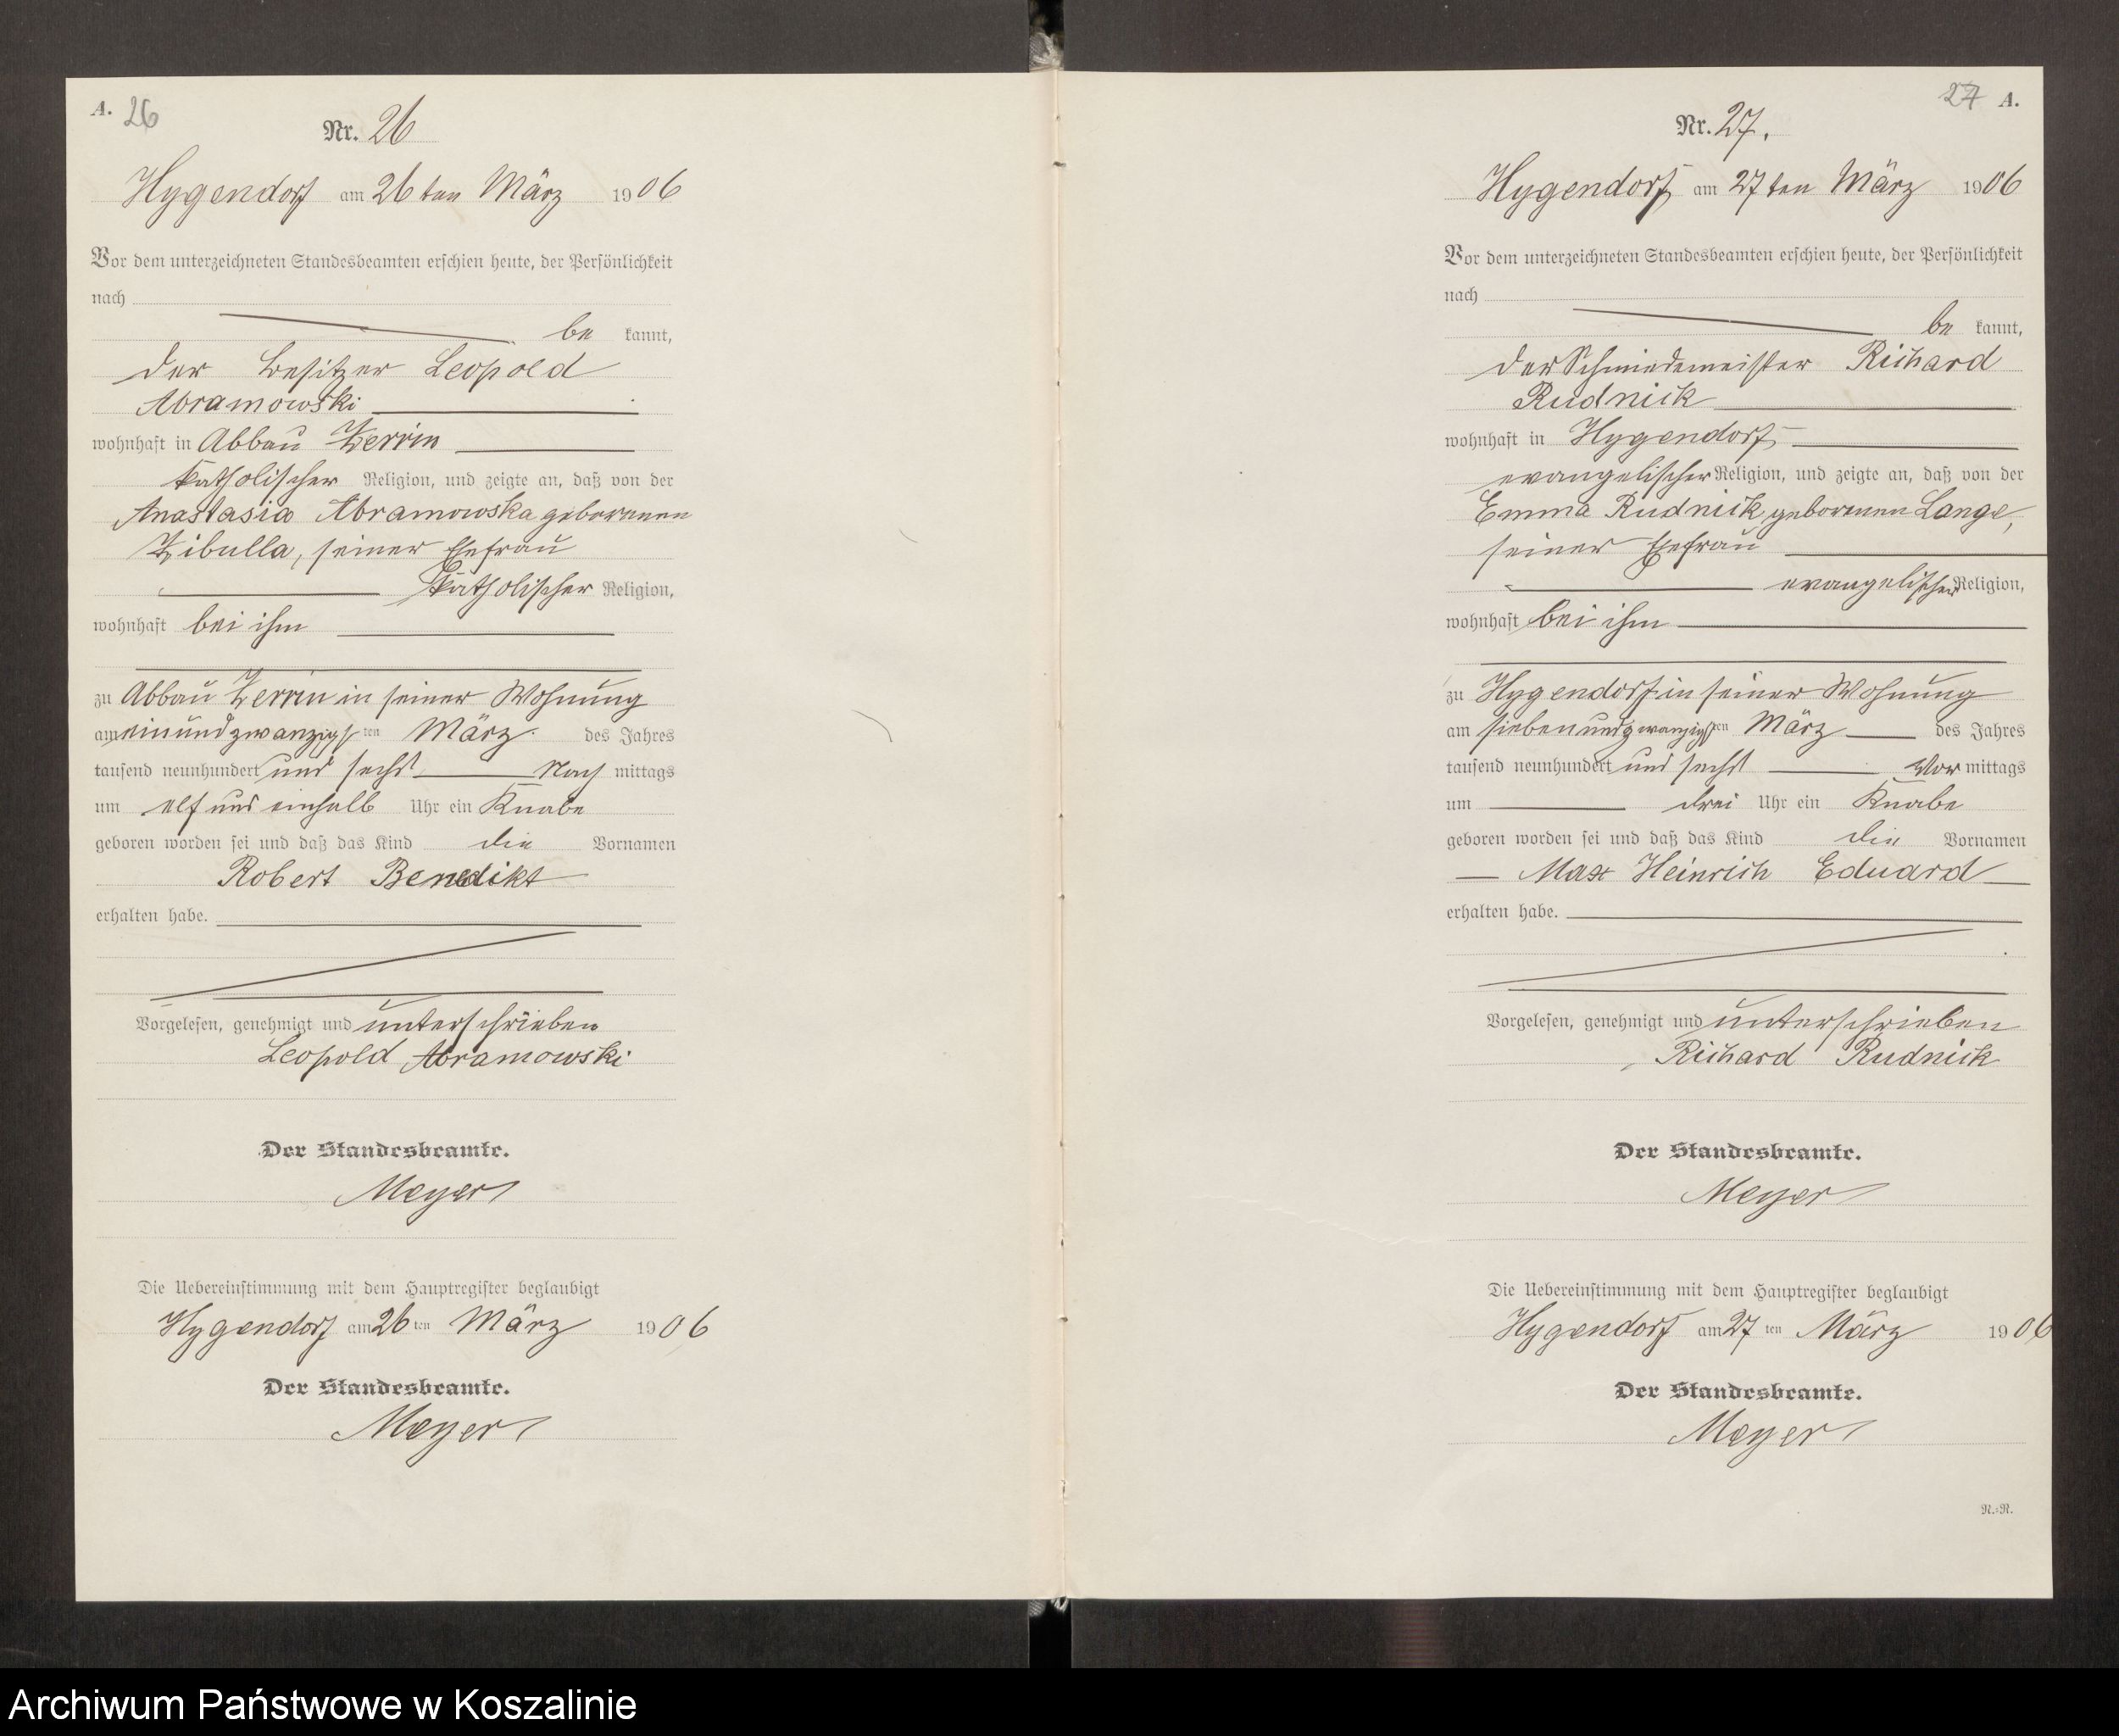 A. 26
Nr. 26
Hygendorf am 26 ten März 1906
Vor dem unterzeichneten Standesbeamten erschien heute, der Persönlichkeit
nach
be kannt,
der Besitzer Leopold
Abramowski
wohnhaft in Abbau Zerrin
katholischer Religion, und zeigte an, daß von der
Anastasia Abramowska geborenen
Zibulla, seiner Ehefrau
katholischer Religion,
wohnhaft bei ihm
zu Abbau Zerrin in seiner Wohnung
am einundzwanzigsten März des Jahres
tausend neunhundert und sechs Nach mittags
um elf und einhalb Uhr ein Knabe
geboren worden sei und daß das Kind die Vornamen
Robert Benedikt
erhalten habe.
Vorgelesen, genehmigt und unterschrieben
Leopold Abramowski
Der Standesbeamte.
Meyer
Die Uebereinstimmung mit dem Hauptregister beglaubigt
Hygendorf am 26 ten März 1906
Der Standesbeamte.
Meyer
27 A.
Nr. 27.
Hygendorf am 27 ten März 1906
Vor dem unterzeichneten Standesbeamten erschien heute, der Persönlichkeit
nach
be kannt,
der Schmiedemeister Richard
Rudnick
wohnhaft in Hygendorf
evangelischer Religion, und zeigte an, daß von der
Emma Rudnick geborenen Lange,
seiner Ehefrau
evangelischer Religion,
wohnhaft bei ihm
zu Hygendorf in seiner Wohnung
am siebenundzwanzigsten März des Jahres
tausend neunhundert und sechs Vor mittags
um drei Uhr ein Knabe
geboren worden sei und daß das Kind die Vornamen
Max Heinrich Eduard
erhalten habe.
Vorgelesen, genehmigt und unterschrieben
Richard Rudnick
Der Standesbeamte.
Meyer
Die Uebereinstimmung mit dem Hauptregister beglaubigt
Hygendorf am 27 ten März 1906
Der Standesbeamte.
Meyer
N.=N.
Archiwum Państwowe w Koszalinie